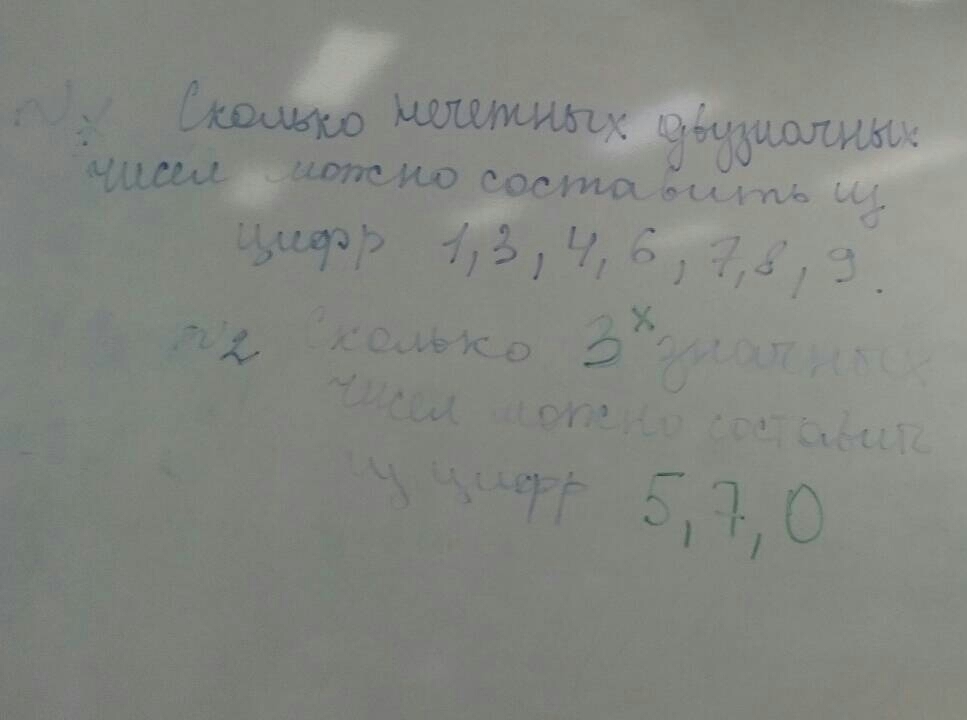 №1 Сколько нечетных двузначных
чисел можно составить из
цифр 1, 3, 4, 6, 7, 8, 9.
№2 Сколько 3х значных
чисел можно составить
из цифр 5, 7, 0